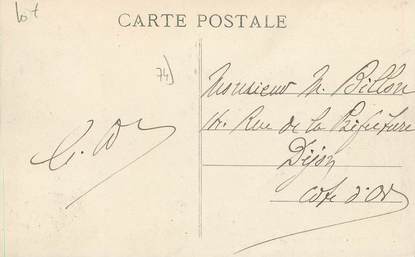 lot
CARTE POSTALE
74)
Monsieur M. Billon
14. Rue de la Préfecture
Dijon
Côte d'Or